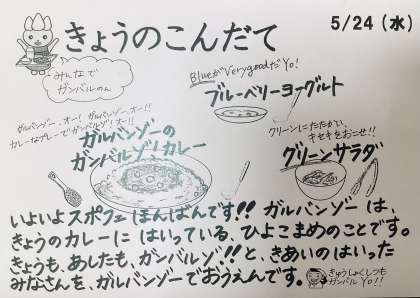 きょうのこんだて
5/24(水)
みんなで
ガンバルのん
BlueがVerygoodだYo!
ブルーベリーヨーグルト
ガルバンゾー、オー! ガルバンゾー、オー!!
カレーなプレーでガンバルゾ!オー!!
ガルバンゾーの
ガンバルゾ!カレー
クリーンにたたかい、
キセキをおこせ!!
グリーンサラダ
いよいよスポフェほんばんです!! ガルバンゾーは、
きょうのカレーに はいっている、ひよこまめのことです。
きょうも、あしたも、ガンバルゾ!!と、きあいのはいった
みなさんを、ガルバンゾーでおうえんです。
きゅうしょくしつも
ガンバルYO!!